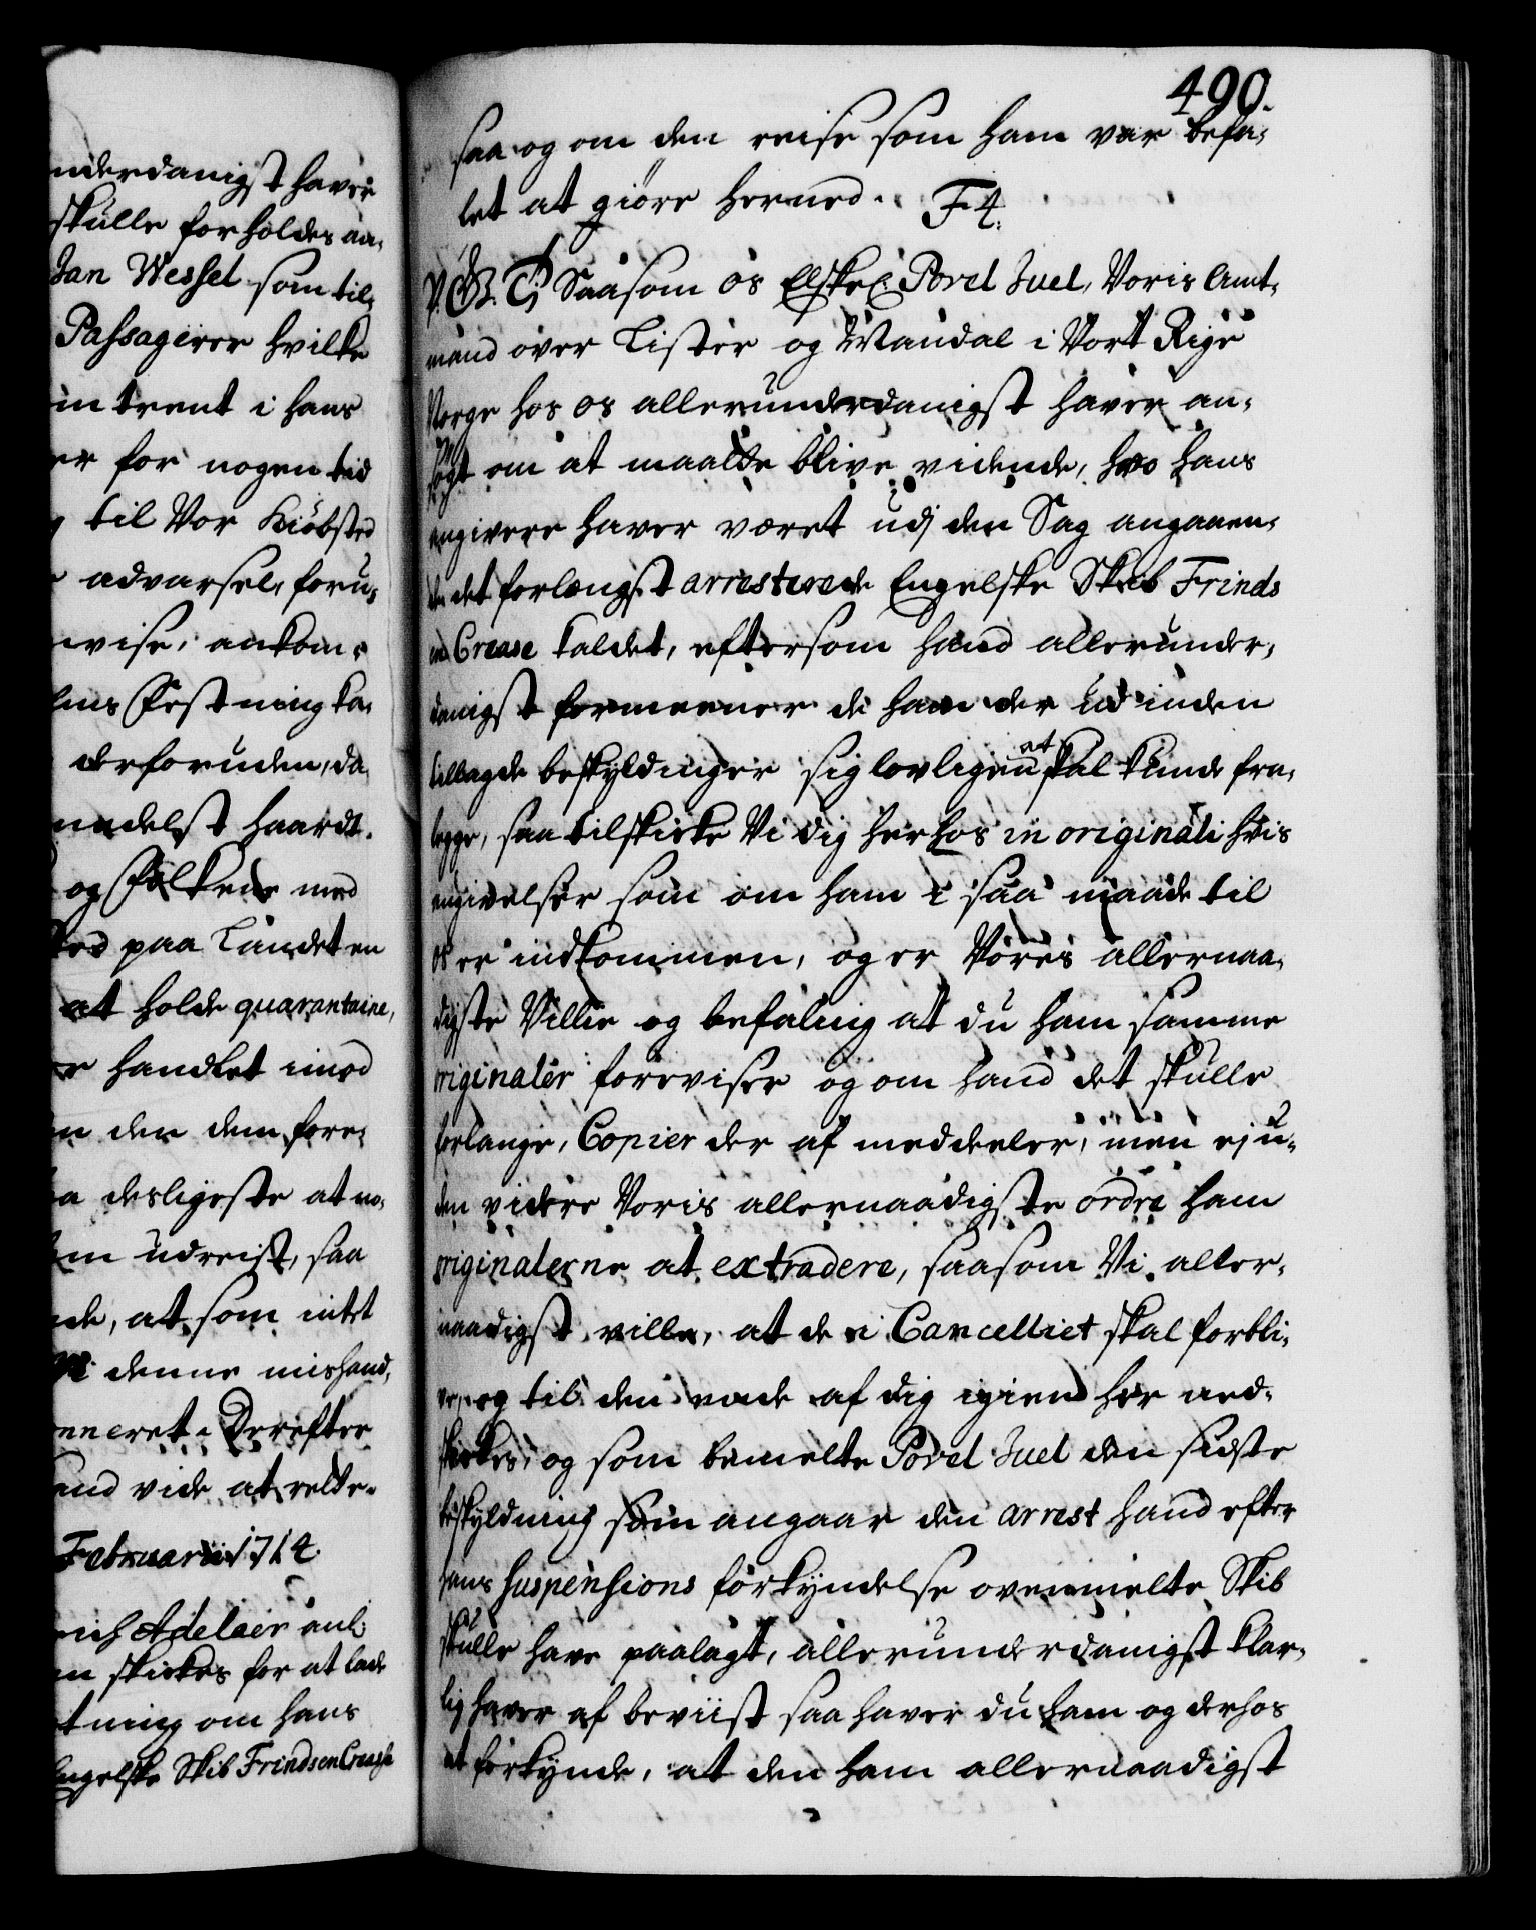 nderdanigst haver
skulle forholdes an-
Jan Wessel som til-
Passagerer hvilke
in trent i hans
er for nogen tid
til Vor Kiöbsted
advarsel, foru-
vise, ankom-
lens Festning ka-
derforuden, da
medelst haardt
og Folkene med
paa Landet en
at holde quarantaine,
r handlet imod
n den dem fore-
a desligeste at no-
udreist, saa
de, at som intet
denne mishand-
nneret. Derefter
end vide at rette.
Februarii 1714.
Adelaer anl:
n skickes for at lade
tning om hans
Engelske Skib Frinds en Crease
490.
saa og om den reise som ham var befa-
let at giöre herned. F4.
V. G. T. Saasom os Elskel: Povel Juel, Voris Amt-
mand over Lister og Mandal i Vort Rige
Norge hos os allerunderdanigst haver an-
sögt om at maatte blive vidende, hvo hans
angivere haver været udj den Sag angaaen-
de det forlængst arresterede Engelske Skib Frinds
en Crease kaldet, eftersom hand allerunder-
danigst formeener de ham der ud inden
tillagde beskyldinger sig lovligen at skal kunde fra-
legge, saa tilskicke Vi dig herhos in originali hvis
angivelser som om ham i saa maade til
os er indkommen, og er Vores allernaa-
digste Villie og befaling at du ham samme
originaler foreviser og om hand det skulle
forlange, Copier der af meddeeler, men ej u-
den videre Voris allernaadigste ordre ham
originalerne at extradere, saasom Vi aller-
naadigst ville, at de i Cancelliet skal forbli-
ve, og til den ende af dig igien her ned-
skickes; og som bemelte Povel Juel den sidste
beskyldning som angaar den arrest hand efter
hans Suspensions forkyndelse ovenmelte Skib
skulle have paalagt, allerunderdanigst klar-
lig haver af beviist saa haver du ham og derhos
at forkynde, at den ham allernaadigst